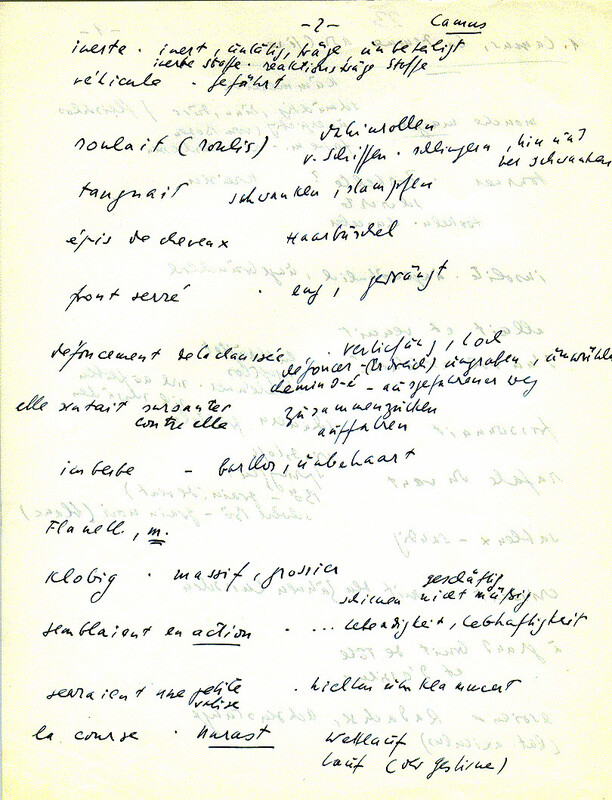 -2- Camus
inerte . inert, untätig, träge unbeteiligt
inerte Stoffe . reaktionsträge Stoffe
véhicule . gefährt
roulait (roulis) dahinrollen
v. Schiffen . schlingern, hin und her schwanken
tanguait schwanken, stampfen
épis de cheveux Haarbüschel
front serré . eng, gedrängt
défoncement de la chaussée . Vertiefung, Loch
défoncer (Erdreich) umgraben, umwühlen
chemin d-é - ausgefahrener Weg
elle sentait sursauter zusammenzucken
contre elle auffahren
imberbe - bartlos, unbehaart
Flanell, m.
klobig . massif, grossier
geschäftig
schienen nicht müßig
semblaient en action . ... Lebendigkeit, Lebhaftigkeit
serraient une petite valise . hielten umklammert
la course . Wettlauf
Lauf (der Gestirne)